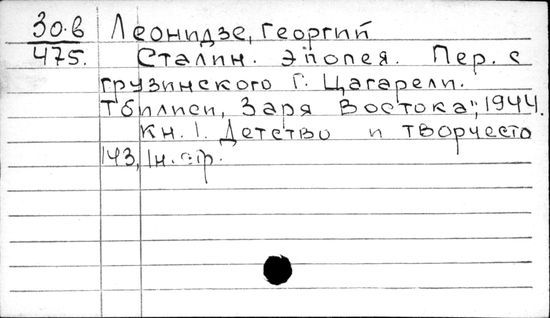 30.в Леонидзе, Георгий
475. Сталин. Эпопея. Пер. с
грузинского Г. Цагарели.
Тбилиси, Заря Востока", 1944.
Кн. 1. Детство и творчесто
143, 1н. стр.